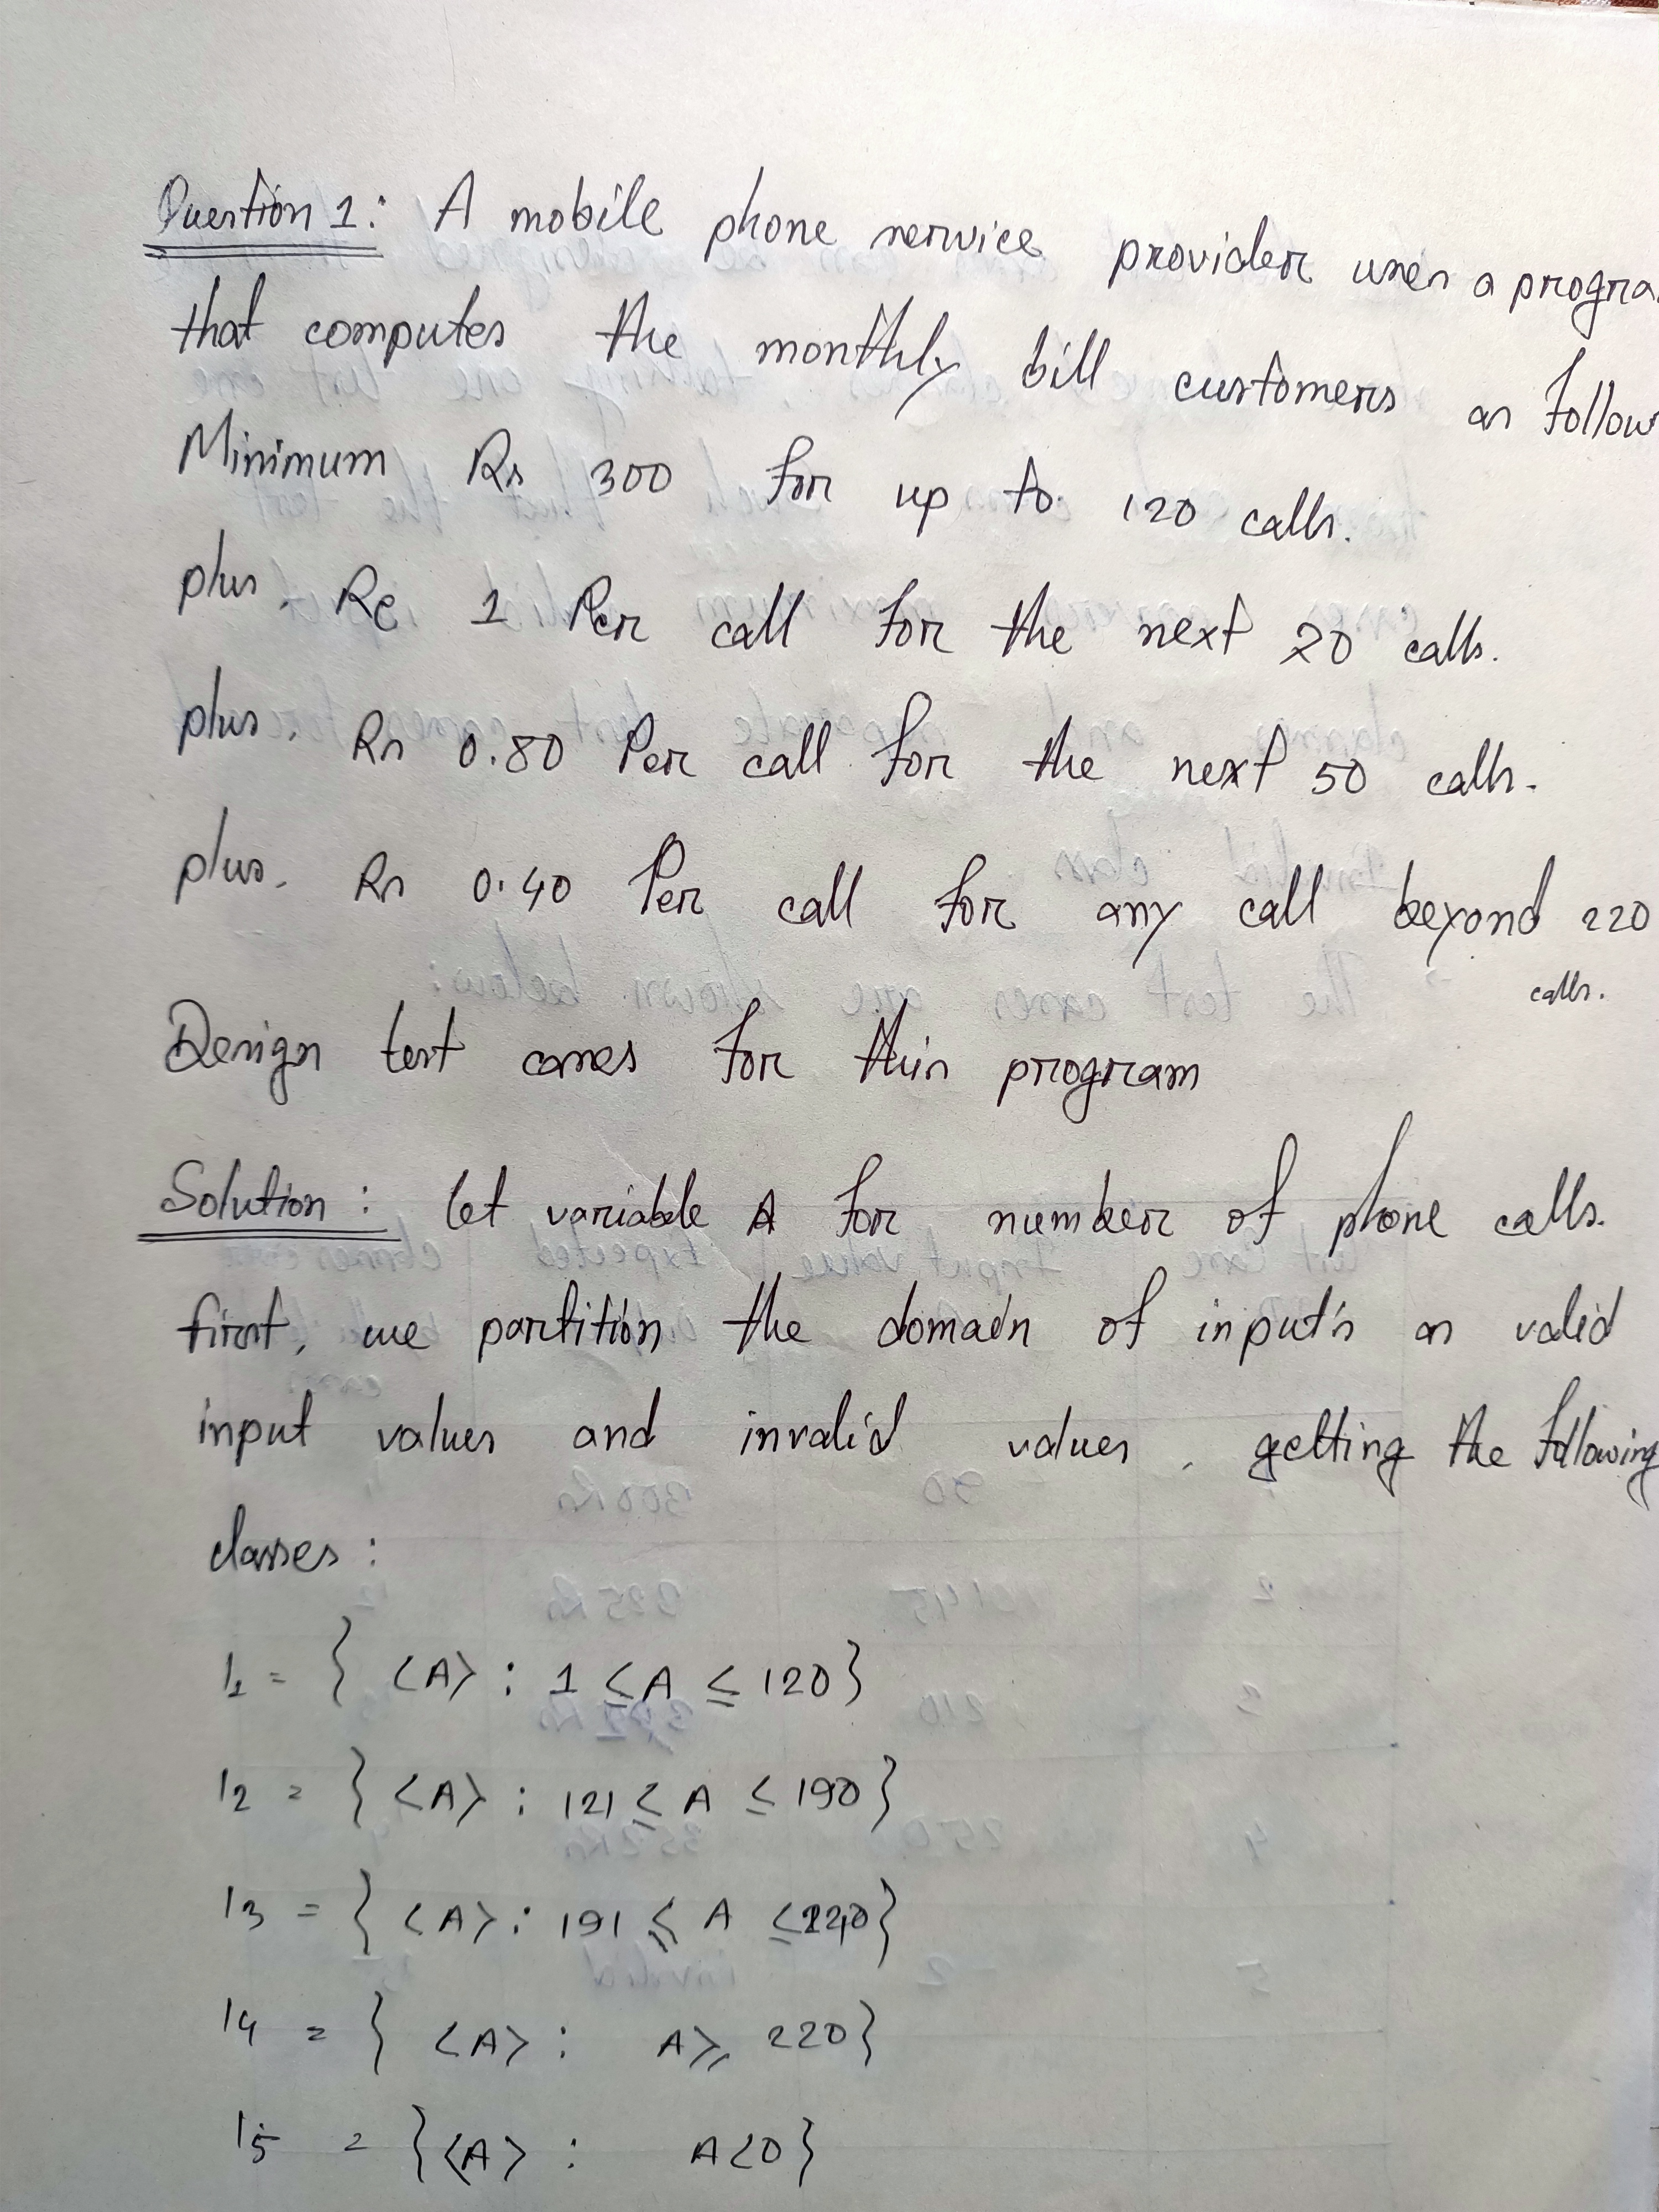 Question 1: A mobile phone service provider uses a progra
that computes the monthly bill customers as follow
Minimum Rs 300 for up to 120 calls.
plus. Re 1 Per call for the next 20 calls.
plus. Rs 0.80 Per call for the next 50 calls.
plus. Rs 0.40 Per call for any call beyond 220
calls.
Design test cases for this program
Solution: let variable A for number of phone calls.
first, we partition the domain of input's as valid
input values and invalid values, getting the following
classes:
I1 = { <A> : 1 ≤ A ≤ 120}
I2 = } <A> : 121 ≤ A ≤ 190}
I3 = } <A> : 191 ≤ A ≤ 220}
I4 = } <A> : A ≥ 220}
I5 = } <A> : A<0}